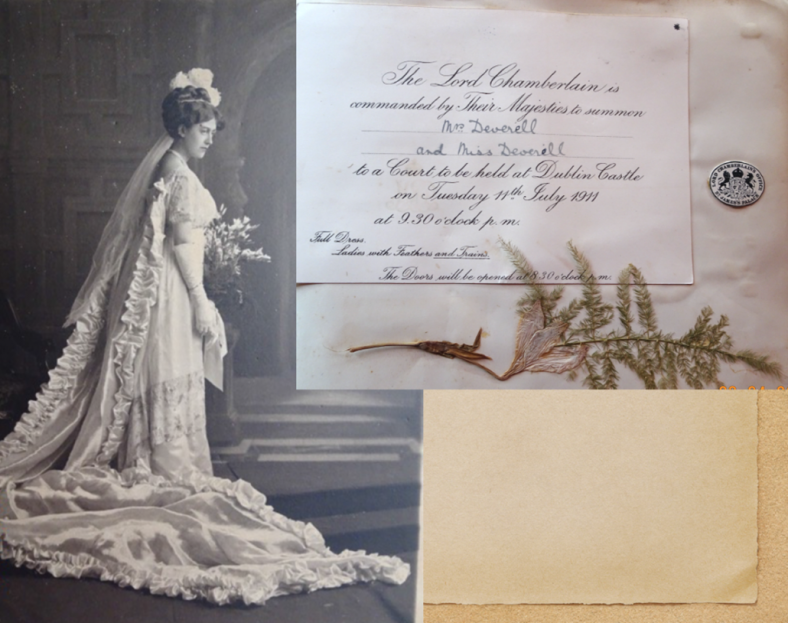 The Lord Chamberlain is
commanded by Their Majesties to summon
Mrs Deverell
and Miss Deverell
to a Court to be held at Dublin Castle
on Tuesday 11th July 1911
at 9.30 o'clock p.m.
Full Dress.
Ladies with Feathers and Trains.
The Doors will be opened at 8.30 o'clock p.m.